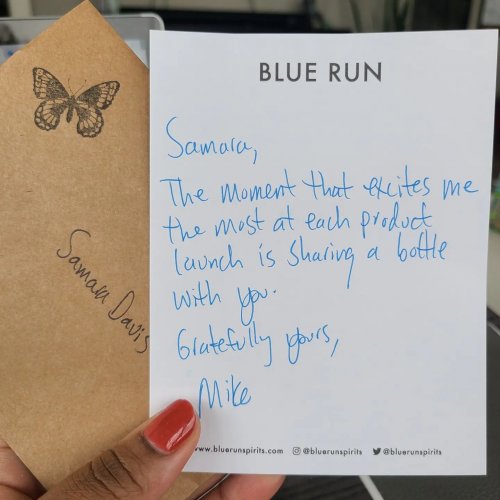 Samara Davis
BLUE RUN
Samara,
The moment that excites me
the most at each product
launch is sharing a bottle
with you.
Gratefully yours,
Mike
www.bluerunspirits.com @bluerunspirits @bluerunspirits